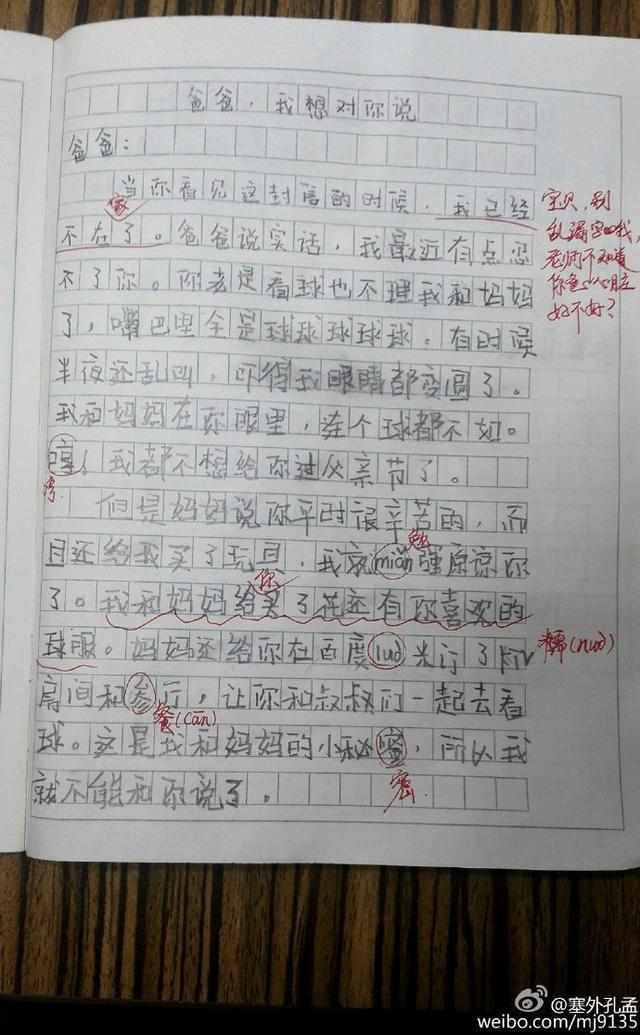 爸爸，我想对你说
爸爸：
当你看见这封信的时候，我已经
家
不在了。爸爸说实话，我最近有点忍
不了你。你老是看球也不理我和妈妈
了，嘴巴里全是球球球球球。有时候
半夜还乱叫，吓得我眼睛都变圆了。
我和妈妈在你眼里，连个球都不如。
哼！我都不想给你过父亲节了。
但是妈妈说你平时很辛苦的，而
勉
且还给我买了玩具，我就mián强原谅你
你
了。我和妈妈给买了花还有你喜欢的
球服。妈妈还给你在百度luò米订了KTV
房间和参厅，让你和叔叔们一起去看
餐(cān)
球。这是我和妈妈的小秘蜜，所以我
就不能和你说了。
密
宝贝，别
乱漏字哦，
老师不知道
你贪心脏
好不好？
糯(nuò)
塞外孔孟
weibo.com/mj9135